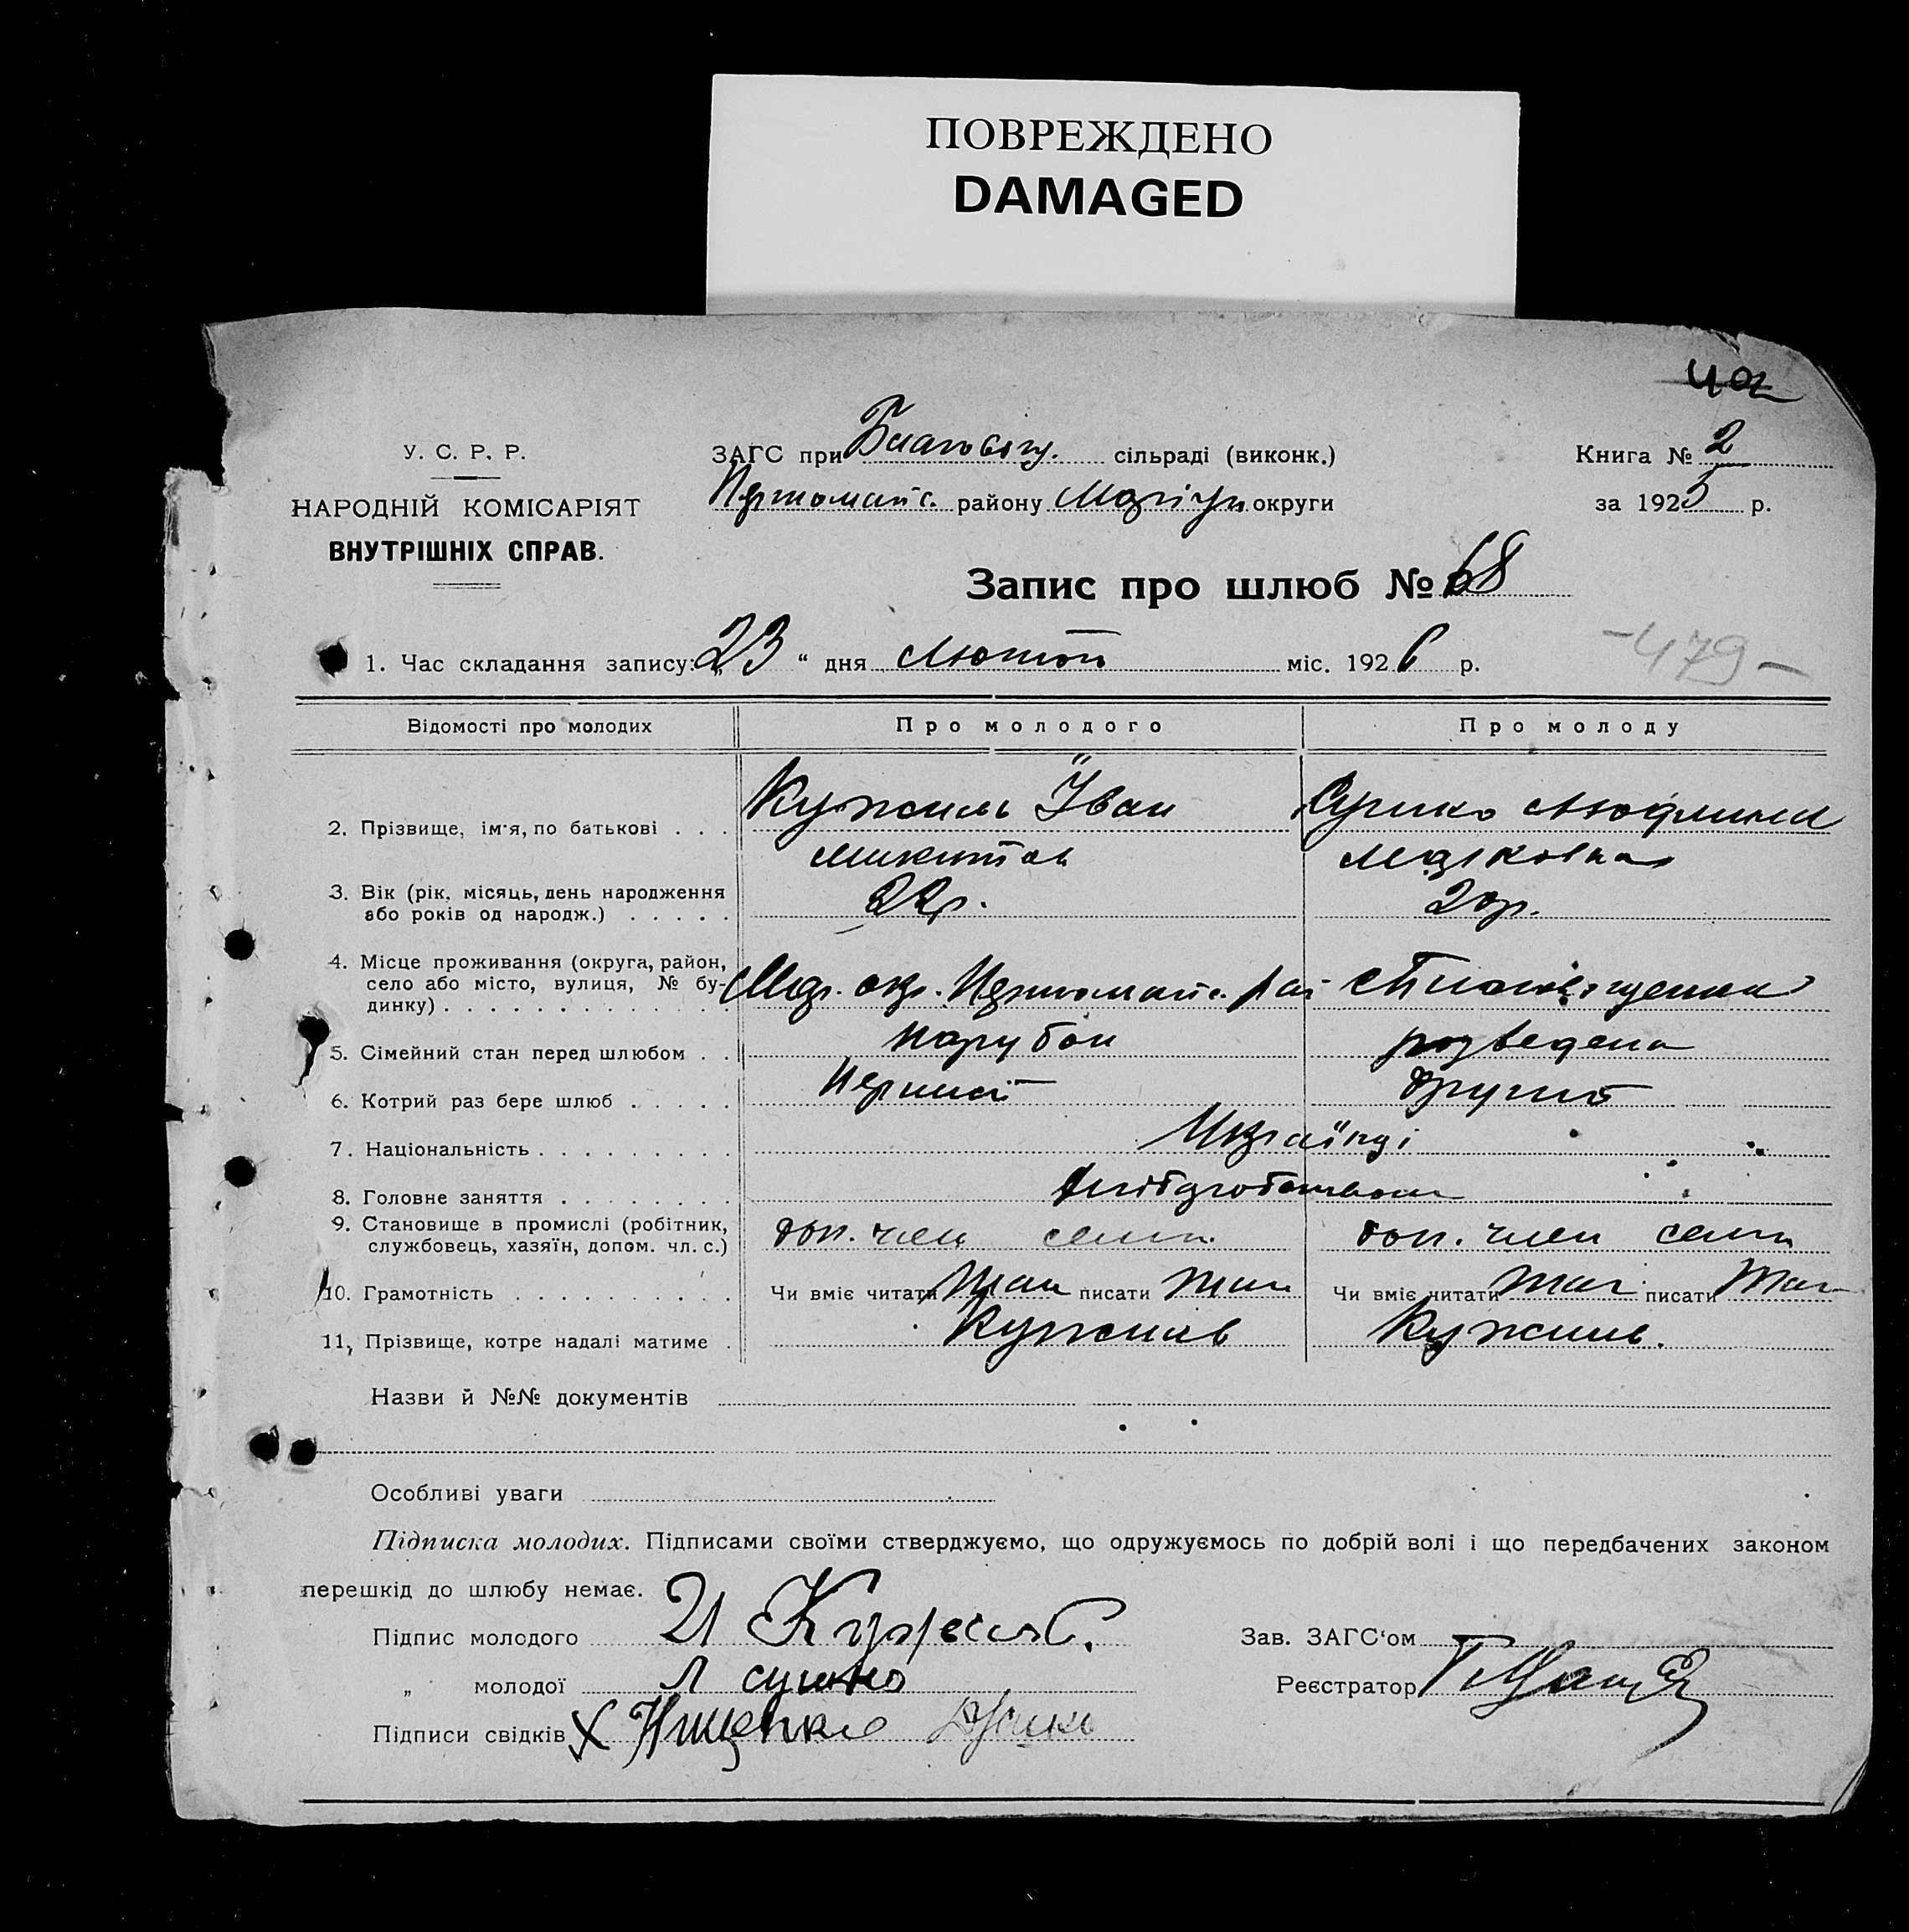 ПОВРЕЖДЕНО
DAMAGED
402
У. С. Р. Р.
НАРОДНІЙ КОМІСАРІЯТ
ВНУТРІШНІХ СПРАВ.
ЗАГС при Благовіщ. сільраді (виконк.)
Первомайс. району Маріуп. округи
Книга № 2
за 1925 р.
Запис про шлюб № 68
1. Час складання запису: „23“ дня Лютого міс. 1926 р.
-479-
Відомості про молодих Про молодого Про молоду
2. Прізвище, ім'я, по батькові . . . Кужиль Їван Сушко Людмила
Микитов Марковна
3. Вік (рік, місяць, день народження
або років од народж.) . . . . . 22р. 20р.
4. Місце проживання (округа, район,
село або місто, вулиця, № бу-
динку) . . . . . . . . . . . . . Мар. окр. Первомайс. рай
5. Сімейний стан перед шлюбом . . Парубок розведена
6. Котрий раз бере шлюб . . . . . Перший другий
7. Національність . . . . . . . . . Українці
8. Головне заняття . . . . . . . . Хліборобством
9. Становище в промислі (робітник,
службовець, хазяїн, допом. чл. с.) доп. член семи. доп. член семи
10. Грамотність . . . . . . . . . . Чи вміє читати так писати так Чи вміє читати так писати так
11, Прізвище, котре надалі матиме . Кужиль Кужиль.
Назви й №№ документів
Особливі уваги
Підписка молодих. Підписами своїми стверджуємо, що одружуємось по добрій волі і що передбачених законом
перешкід до шлюбу немає.
Підпис молодого И Кужель.
Зав. ЗАГС'ом
„ молодої Л сушко
Реєстратор
Підписи свідків X Нищенко